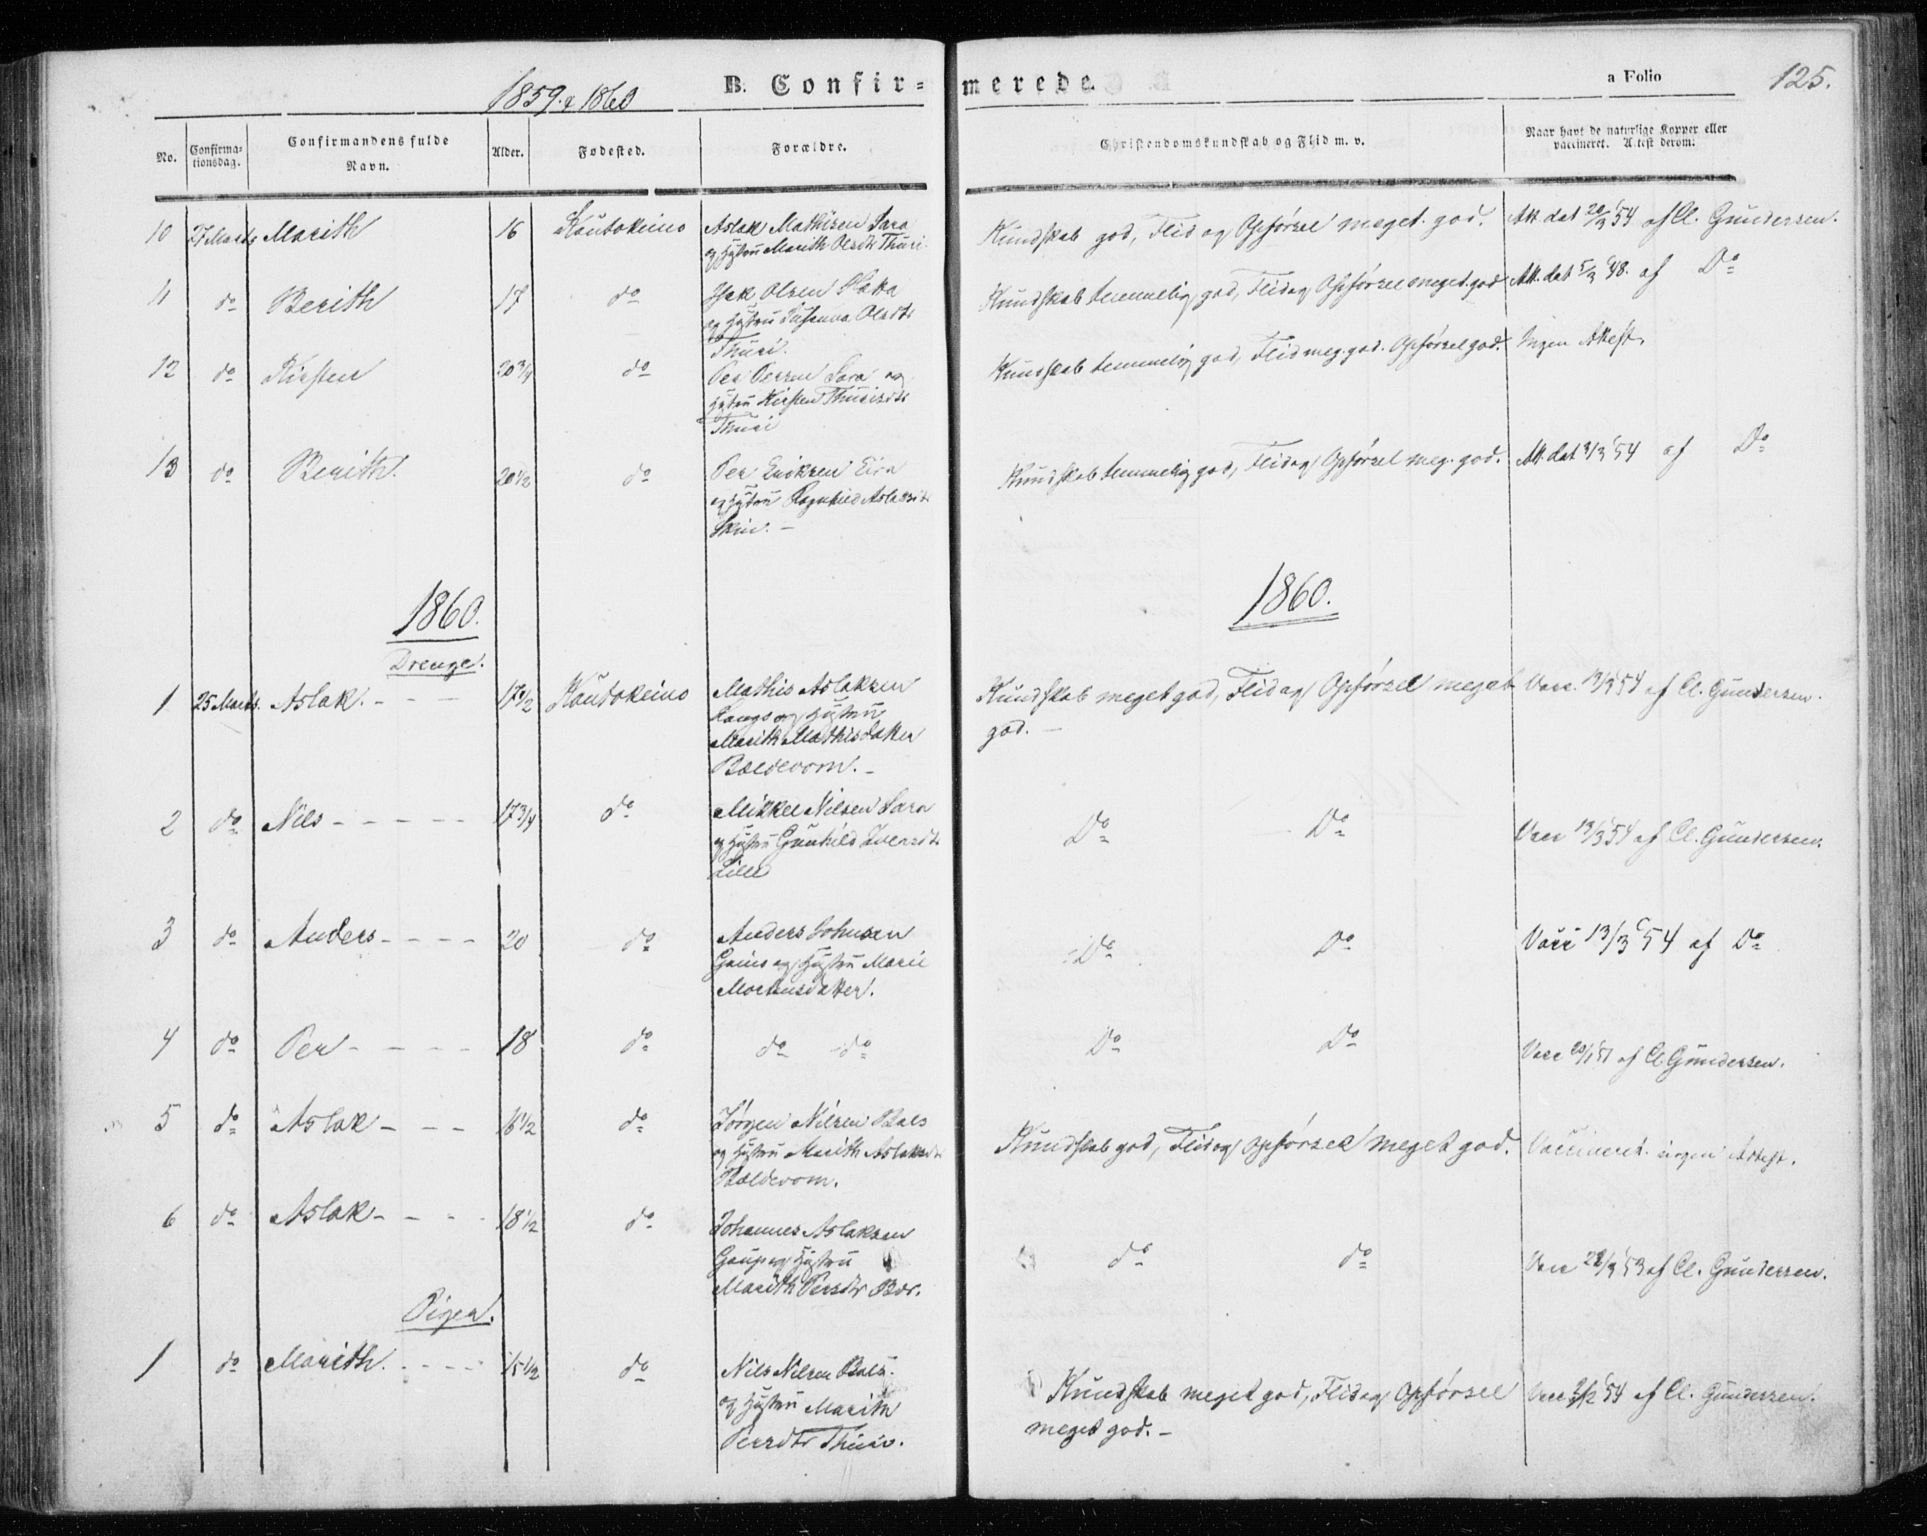 1859 & 1860 B. Confirmerede. a Folio 125.
No. Confirmationsdag. Confirmandens fulde Navn. Alder. Fødested. Forældre. Christendomskundskab og Flid m. v. Naar havt de naturlige Kopper eller vaccineret. Attest derom:
10 27 Marts Marith 16 Kautokeino Aslak Mathisen Sara Kundskab god, Flid og Opførsel meget god. Att. dat 20/2 54 af Cl. Gundersen.
og Hustru Marith Olsdtr Thuri
11 do Berith 17 do Isak Olsen Hætta Kundskab temmelig god, Flid og Opførsel meget god Att. dat 5/3 48. af Do
og Hustru Susanna Olsdtr
Thuri.
12 do Kirsten 20 3/4 do Per Persen Sara og Kundskab temmelig god, Flid meg. god. Opførsel god. Ingen Attest.
Hustru Kirsten Thurisdtr
Thuri
13 do Berith. 20 1/2 do Per Eriksen Eira Kundskab temmelig god, Flid og Opførsel meg. god. Att. dat 3/3 54 af Do
og Hustru Ragnhild Aslaksdtr
Skin. -
1860. 1860.
Drenge.
1 25 Marts. Aslak. - - - 17 1/2 Kautokeino Mathis Aslaksen Kundskab meget god, Flid og Opførsel meget Vacc. 13/3 54 af Cl. Gundersen.
Kongs og Hustru god. -
Marith Mathisdatter
Bældevom. -
2 do Nils - - - - - 17 3/4 do Mikkel Nilsen Sara Do Do Vacc 13/3 54 af Cl. Gundersen.
og Hustru Gunhild Iversdtr
3 do Anders - - - - 20 do Anders Johnsen Do Do Vacc 13/3 54 af Do
Gaino og Hustru Marie
Mortensdatter.
4 do Per - - - - 18 do do do Do Do Vacc 20/1 51 af Cl. Gundersen.
5 do Aslak - - - 16 1/2 do Jørgen Nilsen Bals Kundskab god, Flid og Opførsel meget god. Vaccineret. ingen Attest.
og Hustru Marith Aslaksdtr
Bældevom.
6 do Aslak - - - - 18 1/2 do Johannes Aslaksen do do Vacc 28/3 53 af Cl. Gundersen.
Gaup og Hustru
Marith Persdtr Bær.
Piger.
1 do Marith. - - - - 15 1/2 do Nils Nilsen Bals. Kundskab meget god, Flid og Opførsel Vacc 54 af Cl. Gundersen.
og Hustru Marith meget god. -
Persdtr Thuri.